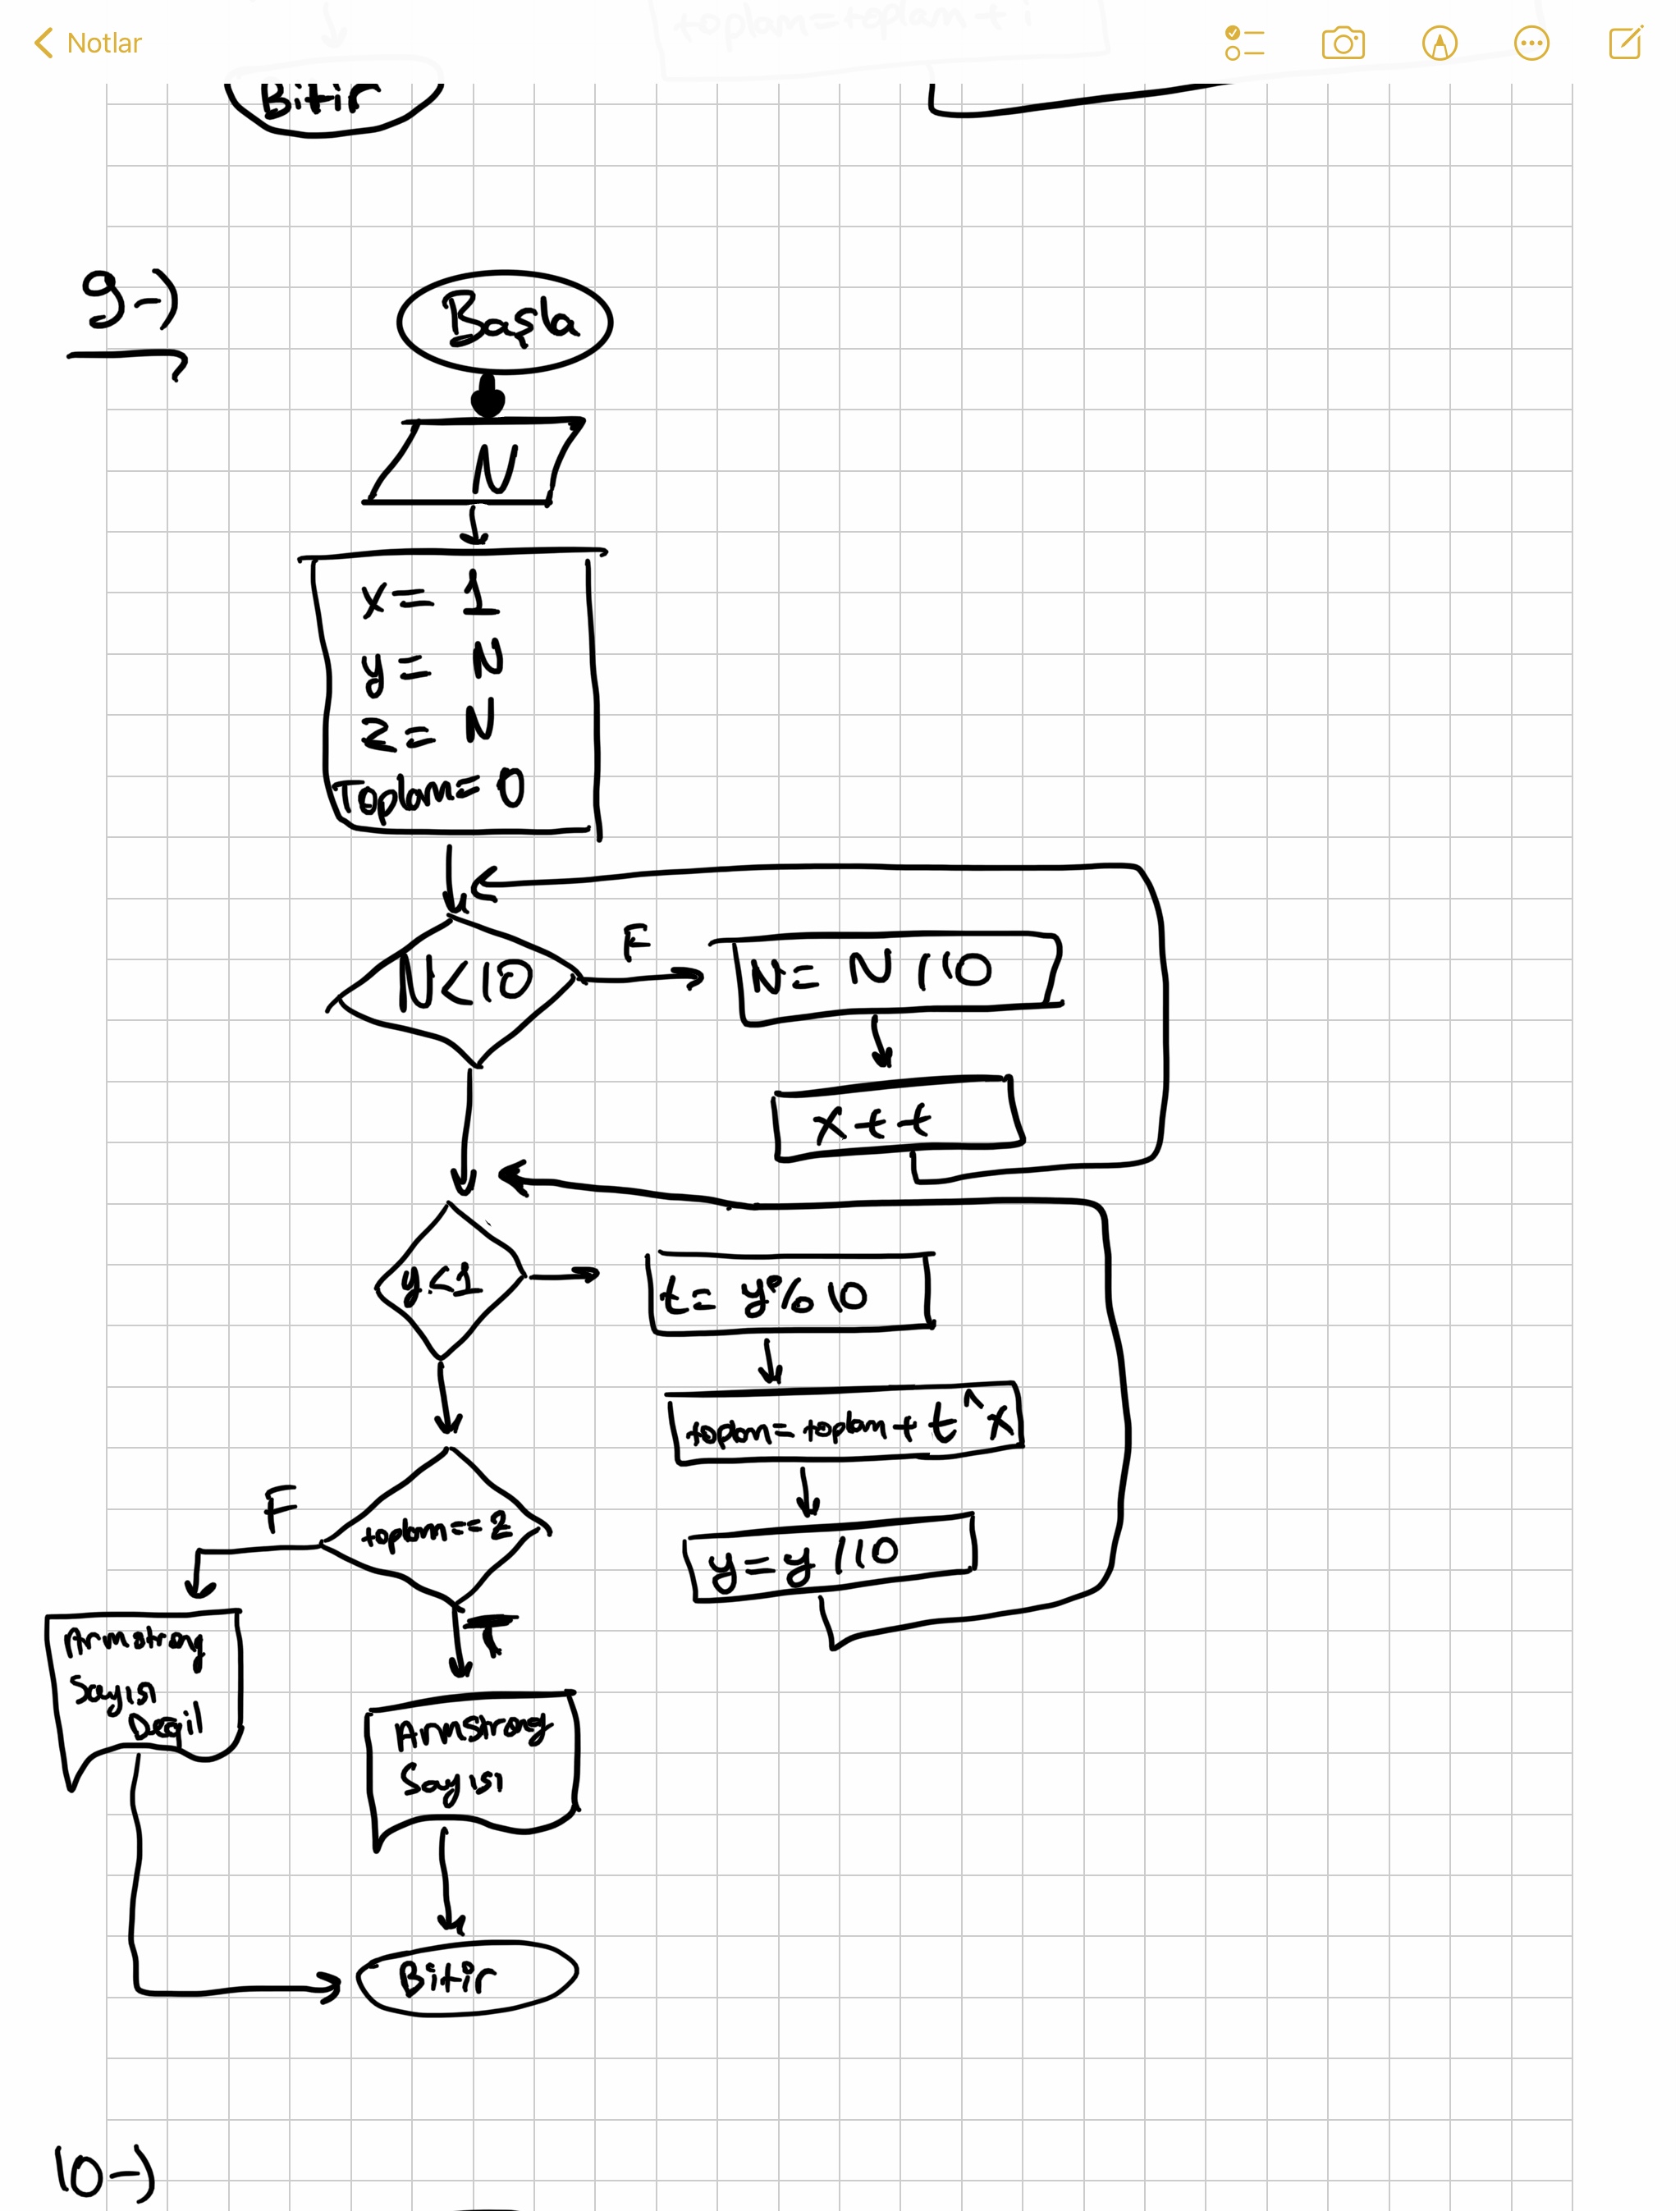 toplam=toplam + i
Notlar
Bitir
9-)
Başla
N
x= 1
y= N
z= N
Toplam= 0
N<10
F
N= N/10
x++
y<1
t= y%10
toplam=toplam+t^x
y=y/10
toplam==z
F
T
Armstrong
Sayısı
Degil
Armstrong
Sayısı
Bitir
10-)